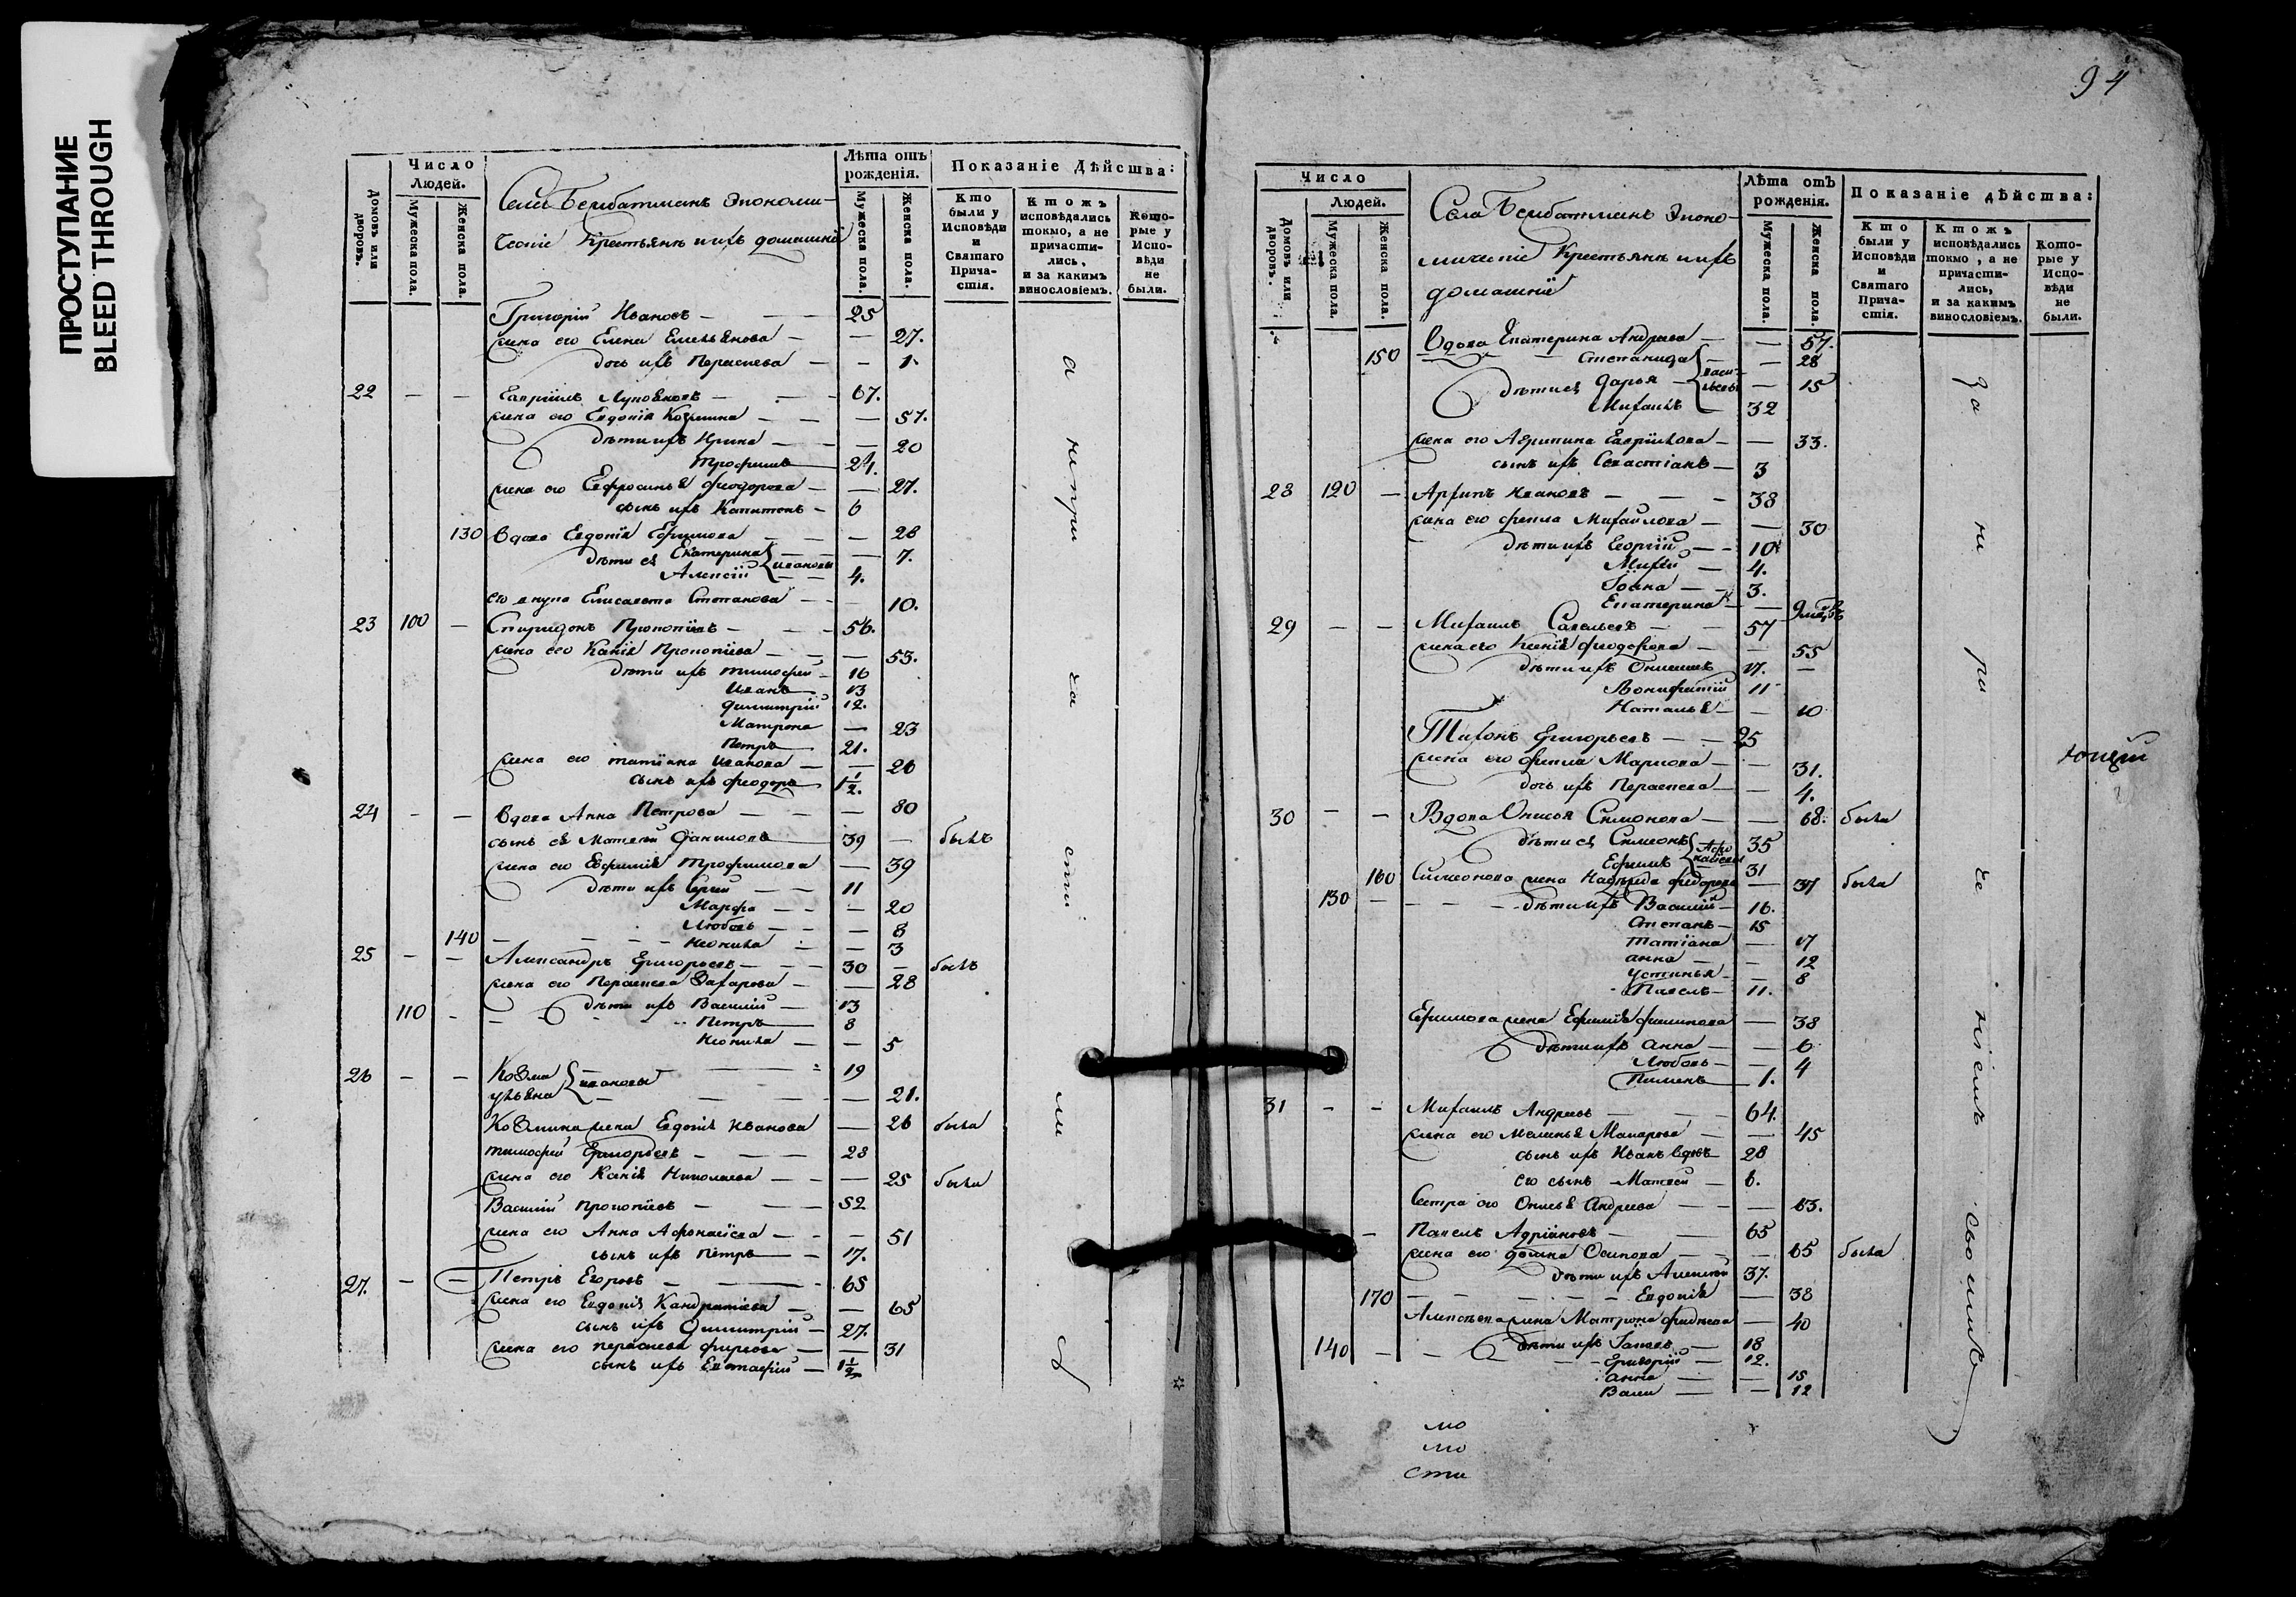 ПРОСТУПАНИЕ
BLEED THROUGH
Число Людей.
Домовъ или дворовъ.
Мужеска пола.
Женска пола.
Села Бембатманъ Экономи-
ческiе Крестьяне и ихъ домашнiе
Лѣта отъ рожденiя.
Мужеска пола.
Женска пола.
Показанiе Дѣйства:
Кто были у Исповѣди и Святаго Прича-стiя.
Ктожъ исповѣдались токмо, а не причасти-лись, и за какимъ винословiемъ.
Кото-рые у Испо-вѣди не были.
Григорiй Ивановъ — 25
жена его Елена Емельянова — 27.
дочь ихъ Параскева — 1.
22 — — Гаврiилъ — 67.
жена его Евдокiя Козмина — 57.
дѣти ихъ Ирина — 20
Трофимъ 24.
жена его Евфросинья Феодорова — 27.
сынъ ихъ Капитонъ — 6
130 вдова Евдокiя Ефимова — 28
дѣти ея Екатерина Ивановы — 7.
Алексiй — 4.
его внука Елисавета Степанова — 10.
23 100 — Спиридонъ Прокопiевъ — 56.
жена его Ксенiя Прокопiева — 53.
дѣти ихъ Тимофей — 16
Иванъ 13
Димитрiй 12.
Матрона — 23
Петръ 21.
жена его Татiана Иванова — 26
сынъ ихъ Феодоръ 1½.
24 — — вдова Анна Петрова — 80
сынъ ея Матвей Данииловъ 39 — былъ
жена его Евфимiя Трофимова — 39
дѣти ихъ Сергiй — 11
Марфа — 20
Любовь — 8
140 Неонила — 3
25 — — Александръ Григорьевъ — 30 — былъ
жена его Параскева Захарова — 28
дѣти ихъ Василiй — 13
110 Петръ 8
Неонила — 5
26 — — Козма Ивановы — 19
Ульяна — 21.
Козмина жена Евдокiя Иванова — 26 была
Тимофей Григорьевъ — 28
жена его Ксенiя Николаева — 25 была
Василiй Прокопiевъ — 52
жена его Анна Афонасiева — 51
сынъ ихъ Петръ — 17.
27. — — Петръ Егоровъ — 65
жена его Евдокiя Кандратiева — 65
сынъ ихъ Димитрiй — 27.
жена его Параскева Фирсова — 31
сынъ ихъ Евстафiй — 1½
а не при ча сти ли сь
94
Число Людей.
Домовъ или дворовъ.
Мужеска пола.
Женска пола.
Села Бембатманъ Эконо-
мическiе Крестьяне и ихъ
домашнiе
Лѣта отъ рожденiя.
Мужеска пола.
Женска пола.
Показанiе дѣйства:
Кто были у Исповѣди и Святаго Прича-стiя.
Ктожъ исповѣдались токмо, а не причасти-лись, и за какимъ винословiемъ.
Кото-рые у Испо-вѣди не были.
Вдова Екатерина Андреева — 57.
150 Степанида — 28
дѣти ея Дарья Васильевы — 15
Михаилъ — 32
жена его Агрипина Гаврiилова — 33.
сынъ ихъ Севастiанъ — 3
28 120 — Архипъ Ивановъ — 38
жена его Фекла Михайлова — 30
дѣти ихъ Георгiй — 10
Михей — 4.
3.
Екатерина —
29 — — Михаилъ Савельевъ — 57
жена его Ксенiя Феодорова — 55
дѣти ихъ Онисимъ 17. —
Вонифатiй 11
Наталья — 10
Тихонъ Григорьевъ — 25
жена его Фекла Маркова — 31.
дочь ихъ Параскева — 4.
30 — — Вдова Онисья Симонова — 68. была
дѣти ея Симеонъ Афонасiевы 35
Ефимъ 31
160 Симеонова жена Надежда Федорова — 37 была
130 дѣти ихъ Василiй — 16.
Степанъ — 15
Татiана — 17
Анна — 12
Устинья — 8
Павелъ — 11.
Ефимова жена Ефимiя Филипова — 38
дѣти ихъ Анна — 6
Любовь — 4
Пименъ — 1.
31 — — Михаилъ Андреевъ — 64.
жена его Меланья Макарова — 45
сынъ ихъ Иванъ вдовъ 28
его сынъ Матвей — 6.
Сестра его Онисья Андреева — 63.
— — Павелъ Адрiановъ — 65
жена его Домна Осипова — 65 была
дѣти ихъ Алексѣй 37.
170 Евдокiя — 38
Алексѣева жена Матрона — 40
140 дѣти ихъ Iаковъ — 18
Григорiй — 12.
Анна — 15
— 12
мо
мо
сти